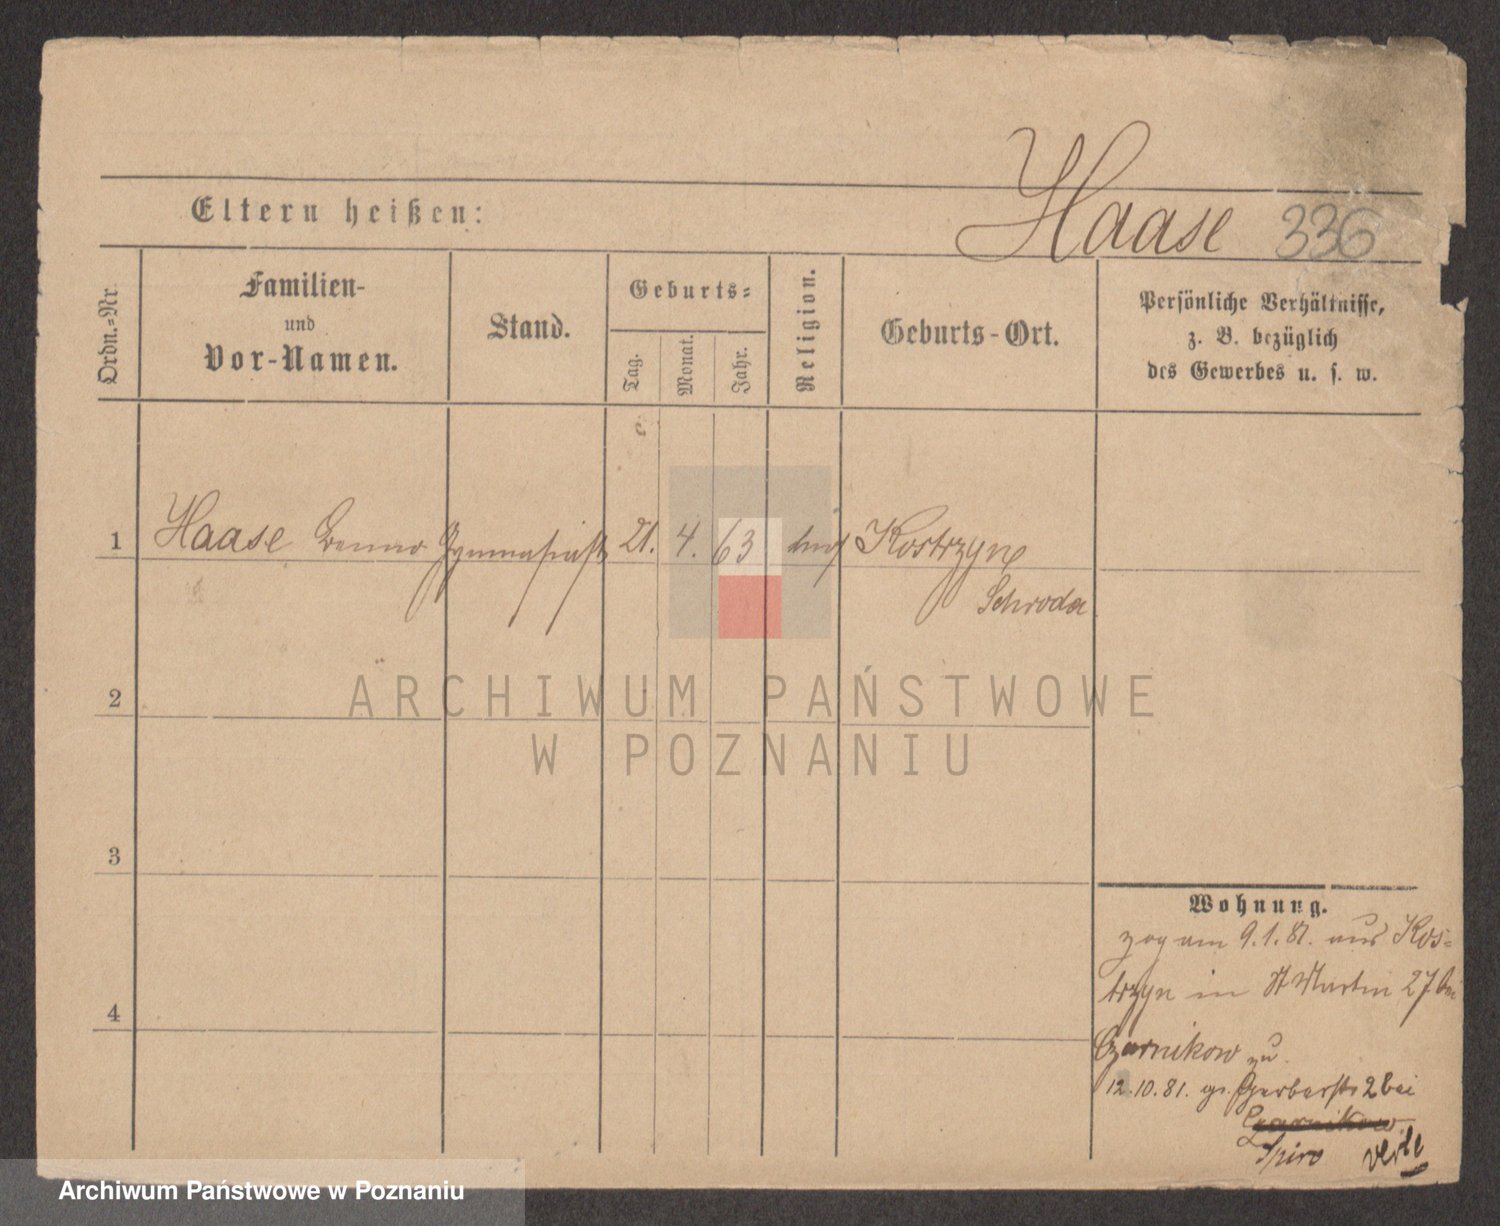 Haase 336
Eltern heißen:
Ordn.=Nr.
Familien-
und
Vor-Namen.
Stand.
Geburts=
Tag.
Monat.
Jahr.
Religion.
Geburts-Ort.
Persönliche Verhältnisse,
z. B. bezüglich
des Gewerbes u. s. w.
1 Haase Benno Gymnasiast 21. 4. 63 Kostrzyn
Schroda
2
3
4
Wohnung.
zog am 9.1.81. aus Kos=
trzyn in St Martin 27 bei
Czarnikow zu
12.10.81. Gerberstr 2 bei
Czarnikow
Spiro
ARCHIWUM PAŃSTWOWE
W POZNANIU
Archiwum Państwowe w Poznaniu